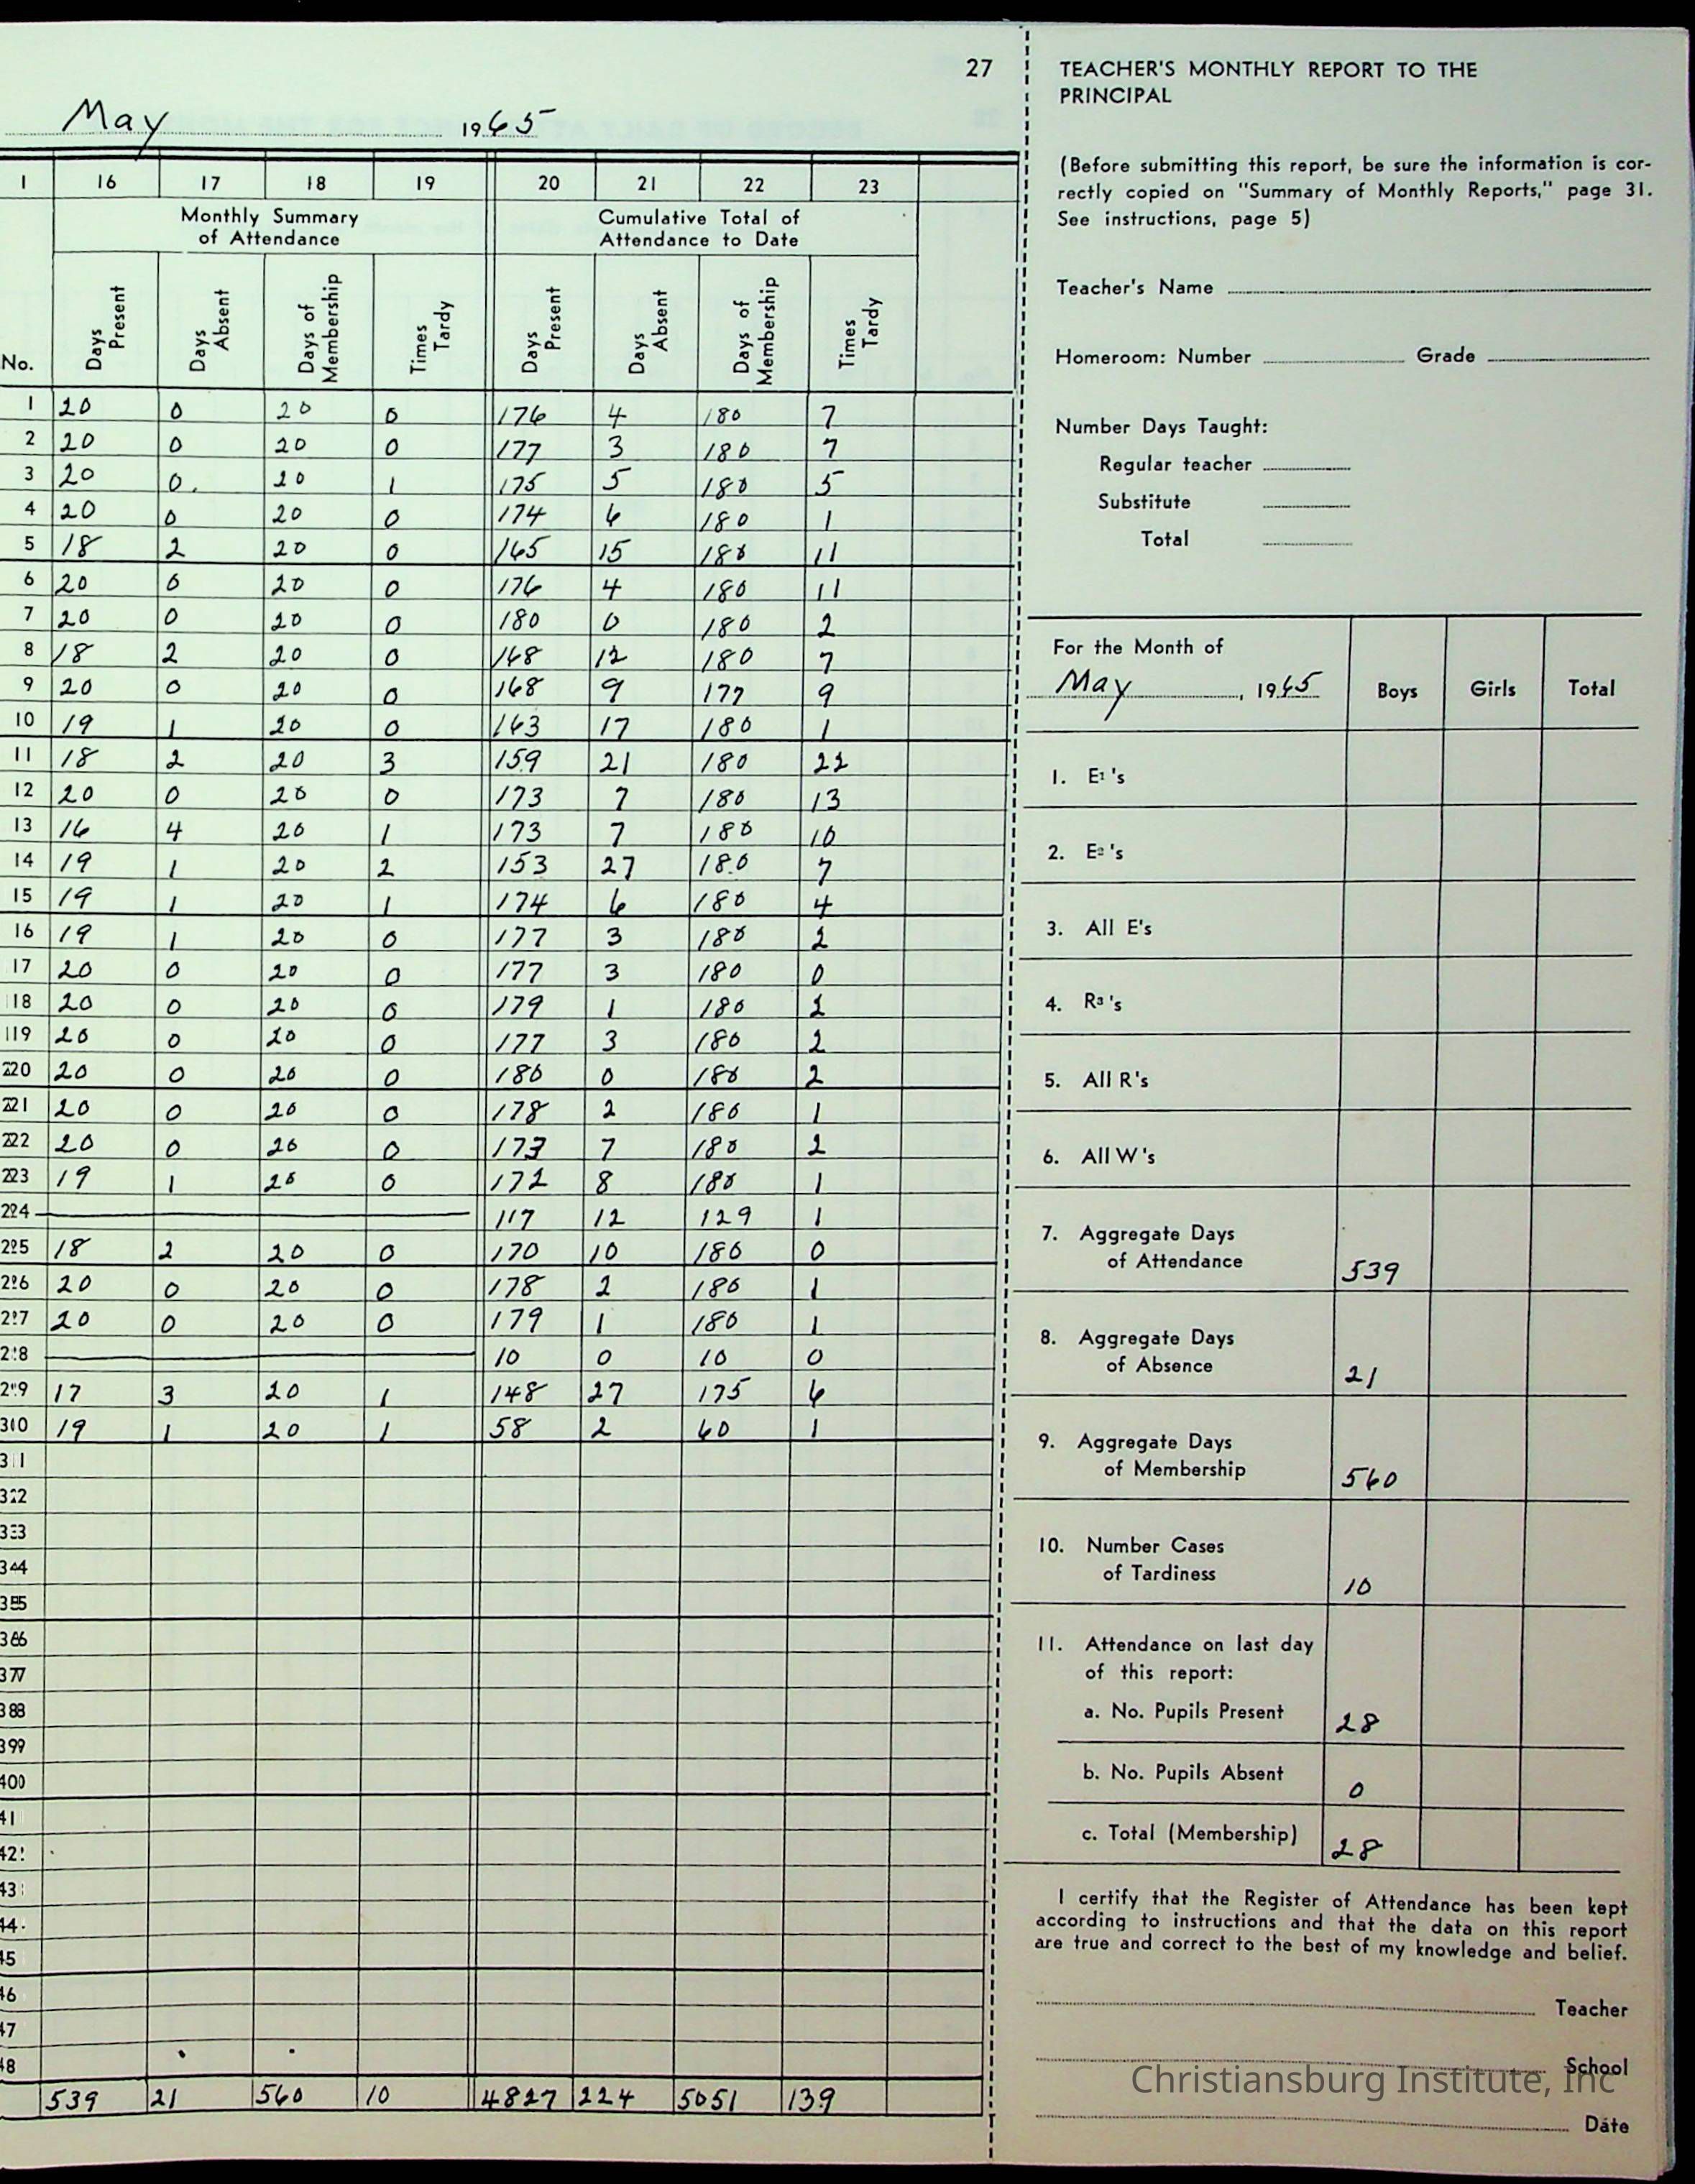 27
May 1965
1 16 17 18 19 20 21 22 23
Monthly Summary of Attendance Cumulative Total of Attendance to Date
No. Days Present Days Absent Days of Membership Times Tardy Days Present Days Absent Days of Membership Times Tardy
1 20 0 20 0 176 4 180 7
2 20 0 20 0 177 3 180 7
3 20 0 20 1 175 5 180 5
4 20 0 20 0 174 6 180 1
5 18 2 20 0 165 15 180 11
6 20 0 20 0 176 4 180 11
7 20 0 20 0 180 0 180 2
8 18 2 20 0 168 12 180 7
9 20 0 20 0 168 9 177 9
10 19 1 20 0 163 17 180 1
11 18 2 20 3 159 21 180 22
12 20 0 20 0 173 7 180 13
13 16 4 20 1 173 7 180 10
14 19 1 20 2 153 27 180 7
15 19 1 20 1 174 6 180 4
16 19 1 20 0 177 3 180 2
17 20 0 20 0 177 3 180 0
18 20 0 20 0 179 1 180 2
19 20 0 20 0 177 3 180 2
20 20 0 20 0 180 0 180 2
21 20 0 20 0 178 2 180 1
22 20 0 20 0 173 7 180 2
23 19 1 20 0 172 8 180 1
24 117 12 129 1
25 18 2 20 0 170 10 180 0
26 20 0 20 0 178 2 180 1
27 20 0 20 0 179 1 180 1
28 10 0 10 0
29 17 3 20 1 148 27 175 6
30 19 1 20 1 58 2 60 1
31
32
33
34
35
36
37
38
39
40
41
42
43
44
45
46
47
48
539 21 560 10 4827 224 5051 139
TEACHER'S MONTHLY REPORT TO THE
PRINCIPAL
(Before submitting this report, be sure the information is cor-
rectly copied on "Summary of Monthly Reports," page 31.
See instructions, page 5)
Teacher's Name
Homeroom: Number Grade
Number Days Taught:
Regular teacher
Substitute
Total
For the Month of
May, 1965 Boys Girls Total
1. E1's
2. E2's
3. All E's
4. R3's
5. All R's
6. All W's
7. Aggregate Days
of Attendance 539
8. Aggregate Days
of Absence 21
9. Aggregate Days
of Membership 560
10. Number Cases
of Tardiness 10
11. Attendance on last day
of this report:
a. No. Pupils Present 28
b. No. Pupils Absent 0
c. Total (Membership) 28
I certify that the Register of Attendance has been kept
according to instructions and that the data on this report
are true and correct to the best of my knowledge and belief.
Teacher
School
Christiansburg Institute, Inc
Date